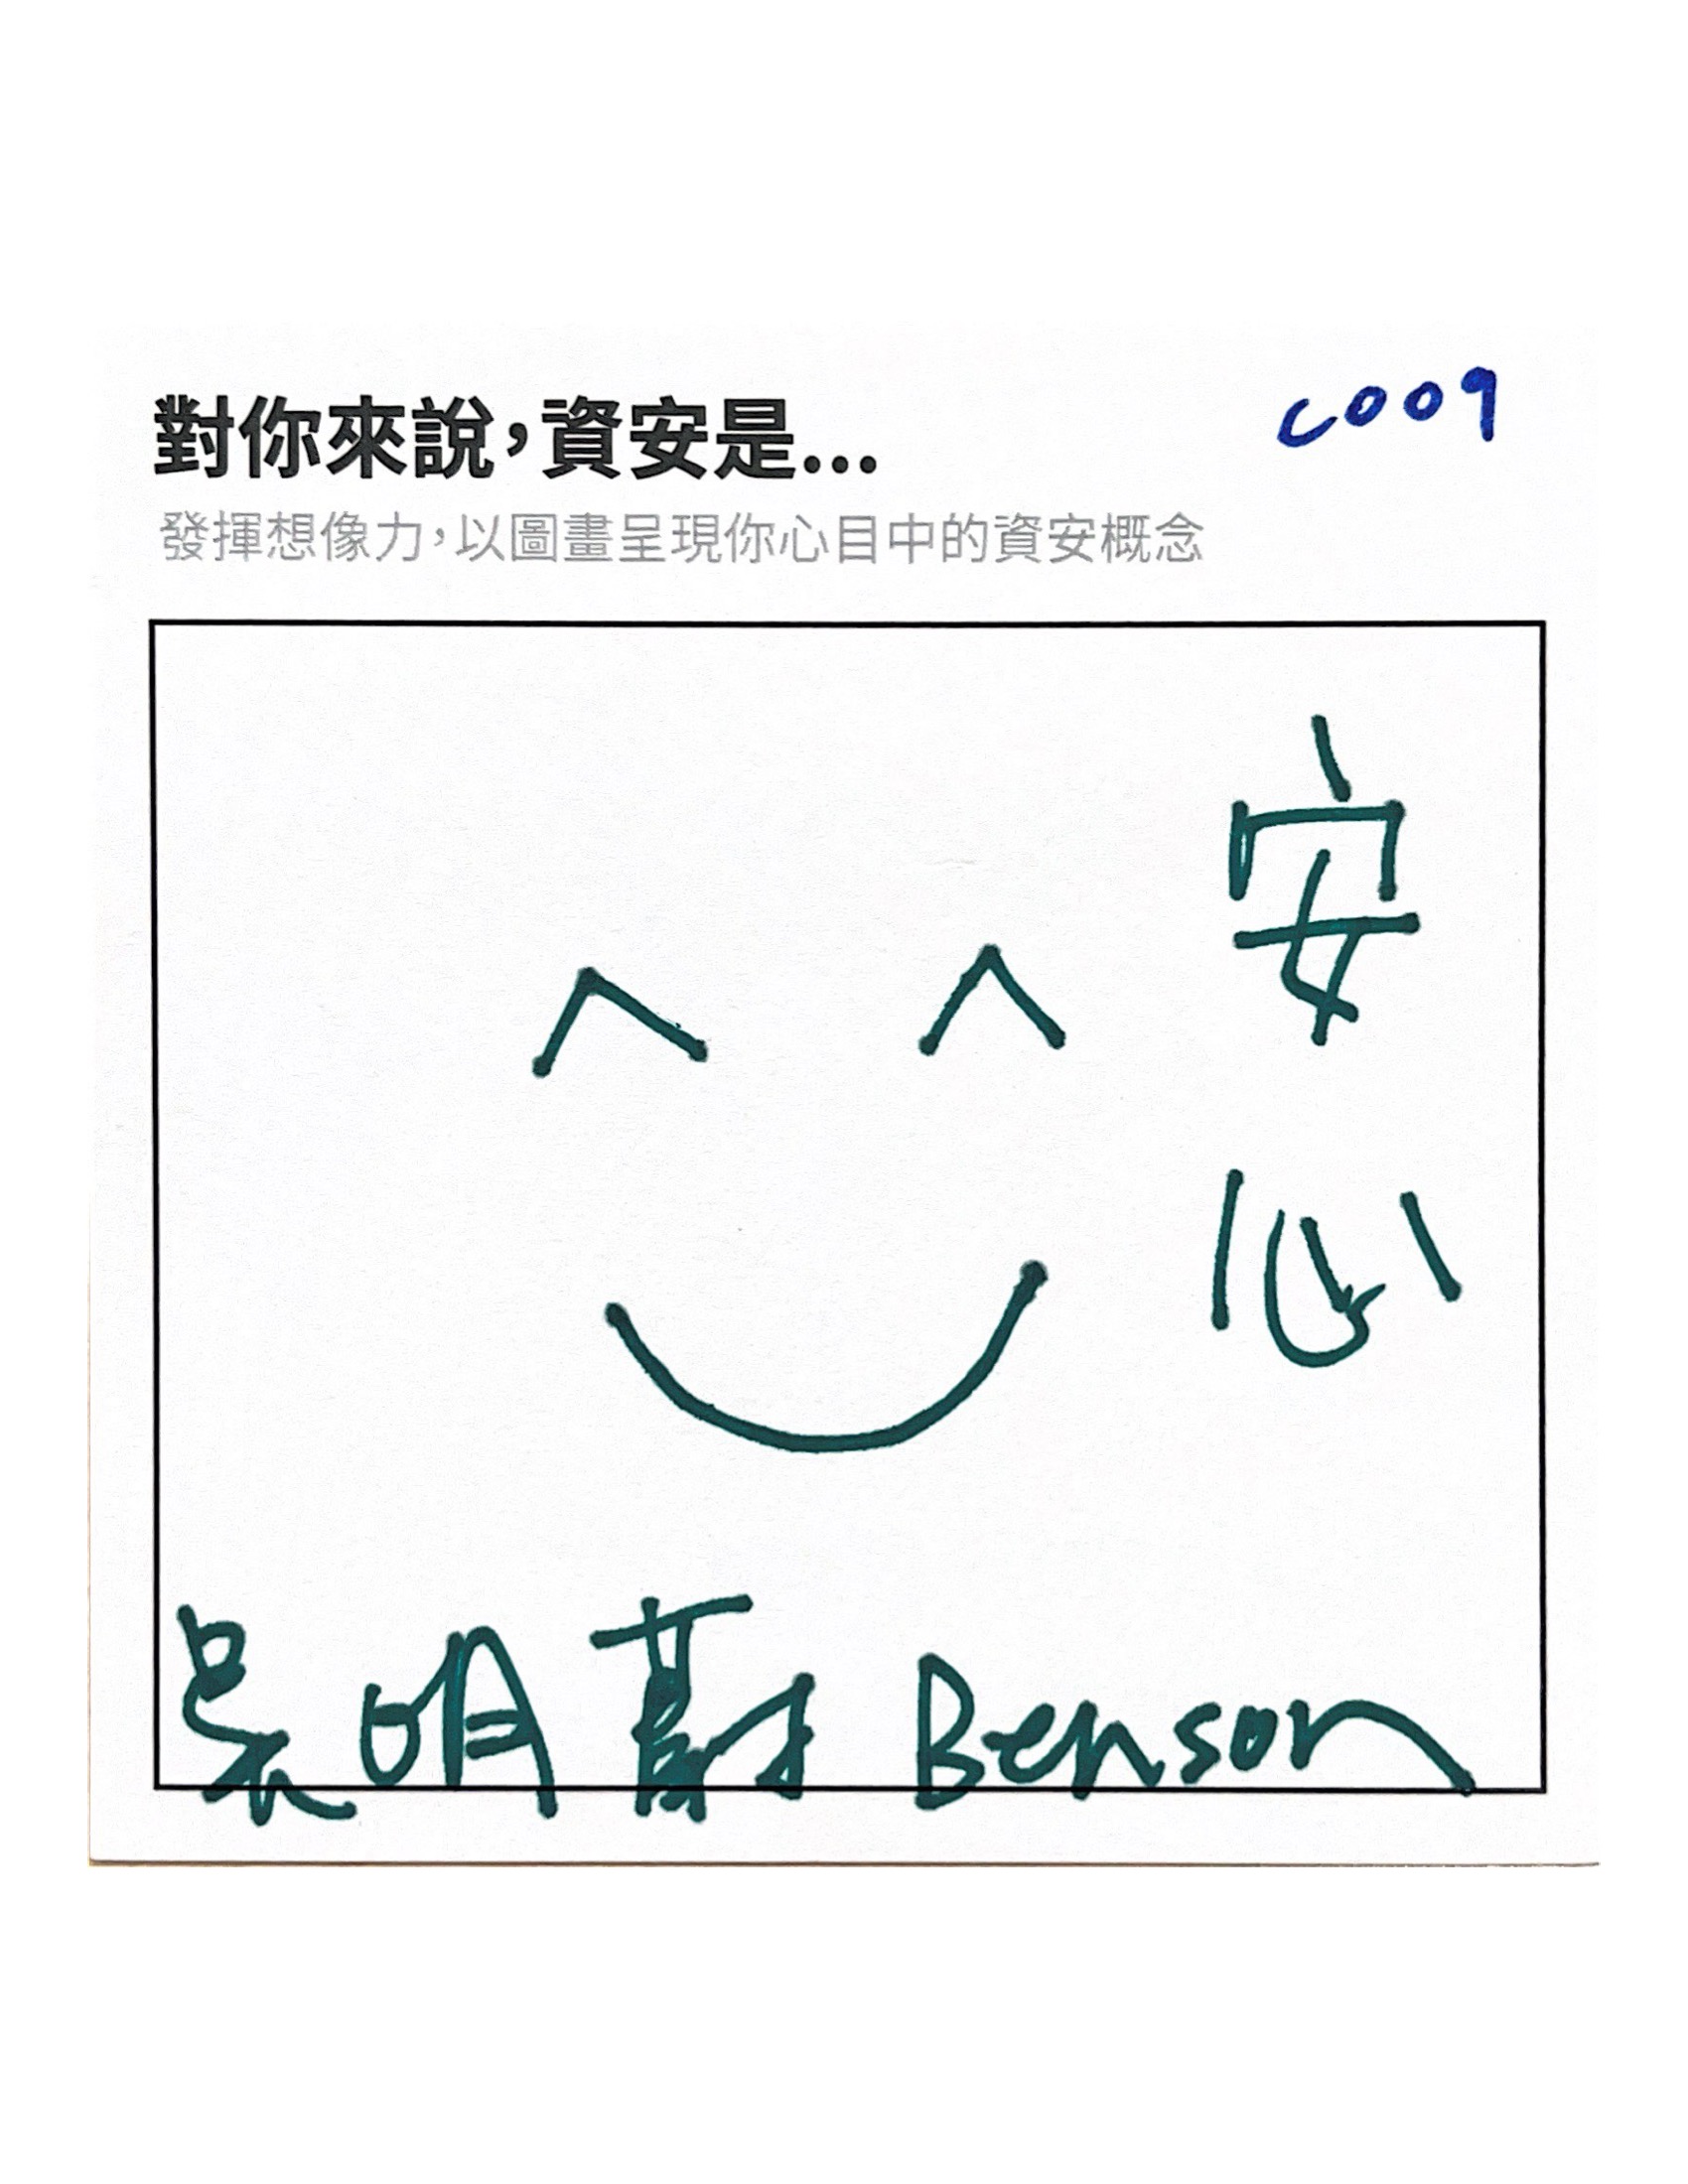 對你來說,資安是...
c009
發揮想像力,以圖畫呈現你心目中的資安概念
安心
吳明蔚 Benson